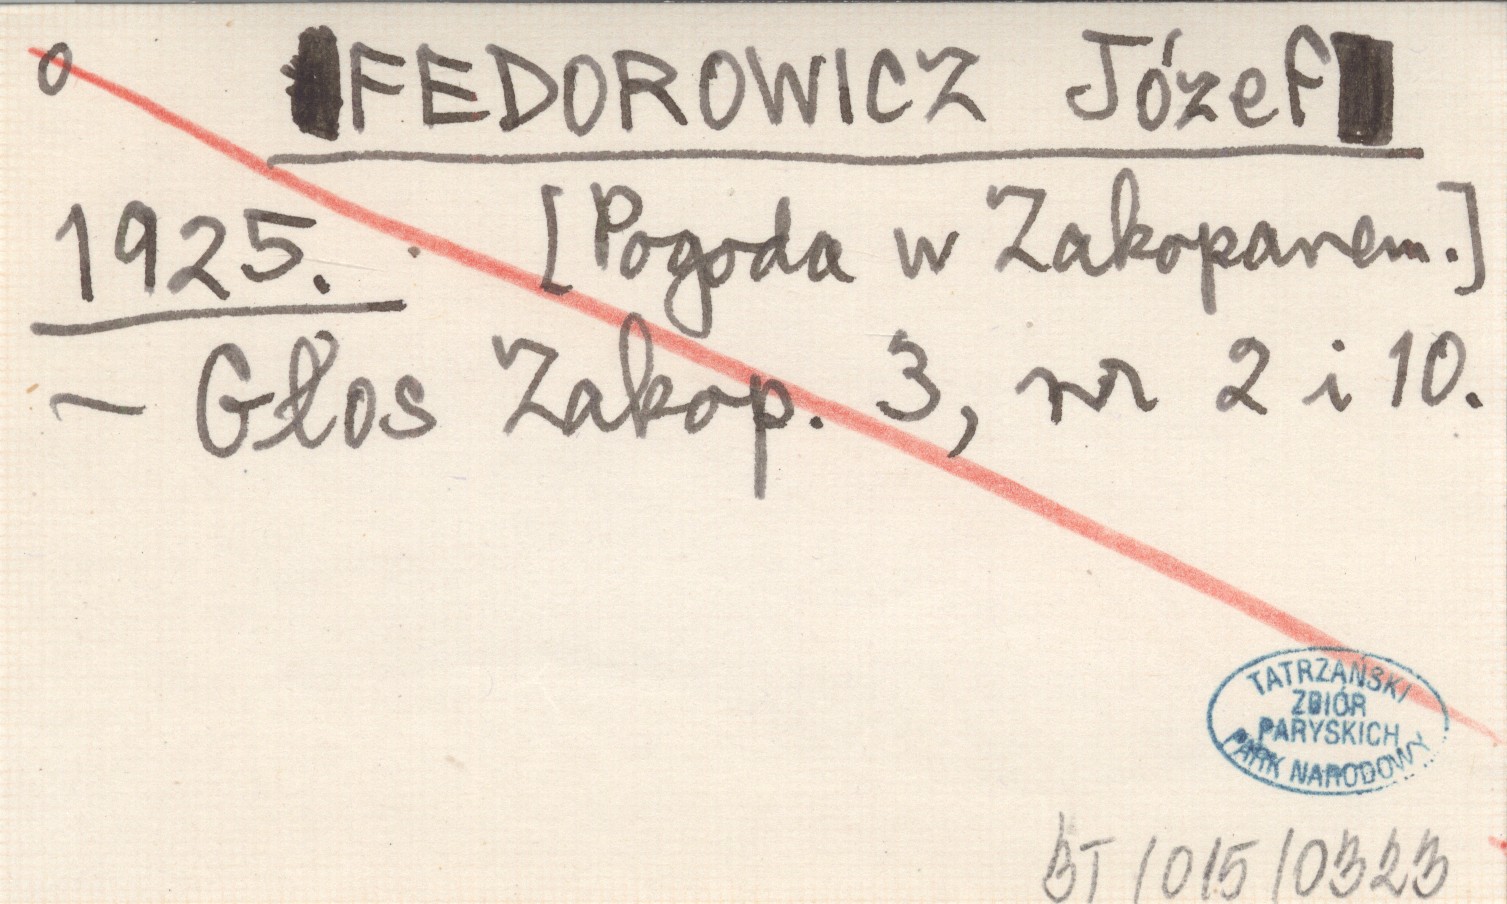 o FEDOROWICZ Józef
1925. [Pogoda w Zakopanem.]
– Głos Zakop. 3, nr 2 i 10.
TATRZAŃSKI
ZBIÓR
PARYSKICH
PARK NARODOWY
BT/015/0323